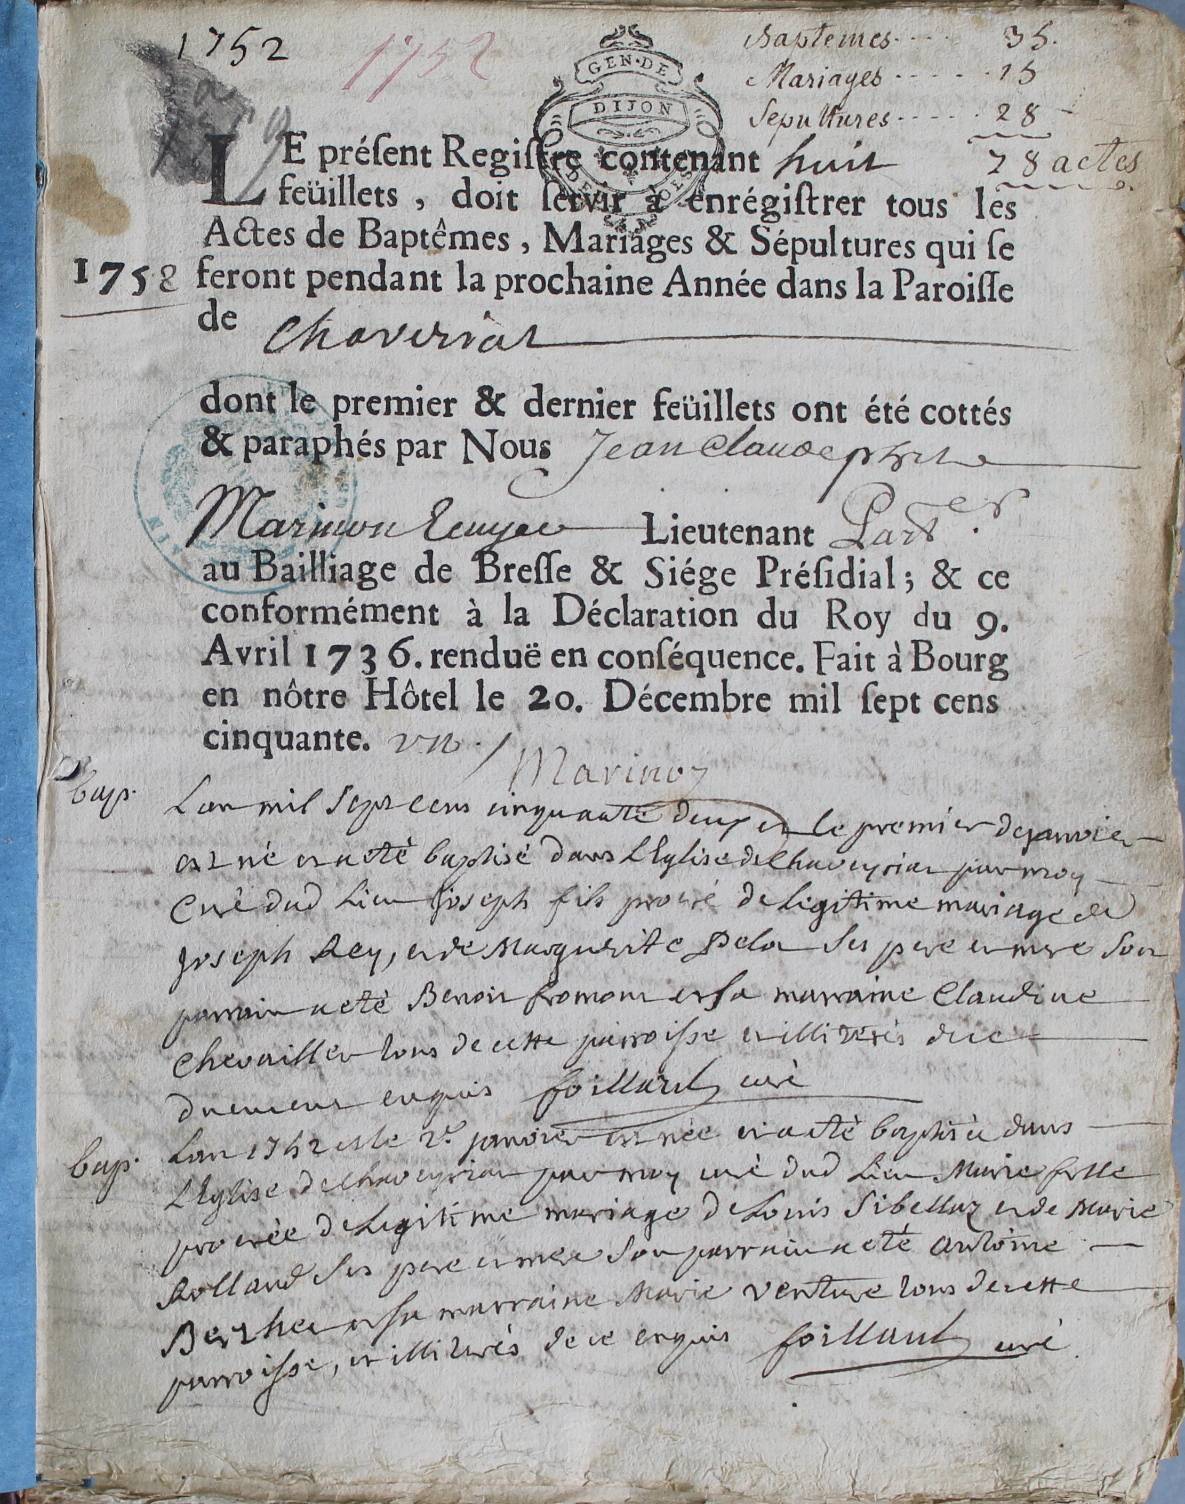 1752
1752
Baptemes .... 35.
Mariages ..... 15
Sepultures ..... 28
78 actes
GEN·DE
DIJON
LE préſent Regiſtre contenant huit
feüillets, doit ſervir à enrégiſtrer tous les
Actes de Baptêmes, Mariages & Sépultures qui ſe
1752 feront pendant la prochaine Année dans la Paroiſſe
de Chaveriat
dont le premier & dernier feüillets ont été cottés
& paraphés par Nous Jean Claude
Marinon Lieutenant Part.er
au Bailliage de Breſſe & Siége Préſidial; & ce
conformément à la Déclaration du Roy du 9.
Avril 1736. renduë en conſéquence. Fait à Bourg
en nôtre Hôtel le 20. Décembre mil ſept cens
cinquante. un. / Marinon
bap. Lan mil sept cens cinquante deux et le premier de janvier
est né et a eté baptisé dans l'Eglise de Chaveyriat par moy
Curé dud Lieu Joseph fils procréé de legitime mariage de
Joseph Rey, et de Marguerite Pela ses pere et mere son
parrain a eté Benoit fromont et sa marraine Claudine
Chevaillier tous de cette parroisse et illiterés de ce
duement enquis foillard curé
bap. Lan 1752 et le 2.d janvier est née et a eté baptisée dans
l'Eglise de Chaveyriat par moy curé dud Lieu Marie fille
procréée de legitime mariage de Louis Sibellaz et de Marie
Rolland ses pere et mere son parrain a eté antoine
Berthet et sa marraine Marie venture tous de cette
parroisse, et illiterés de ce enquis foillard curé